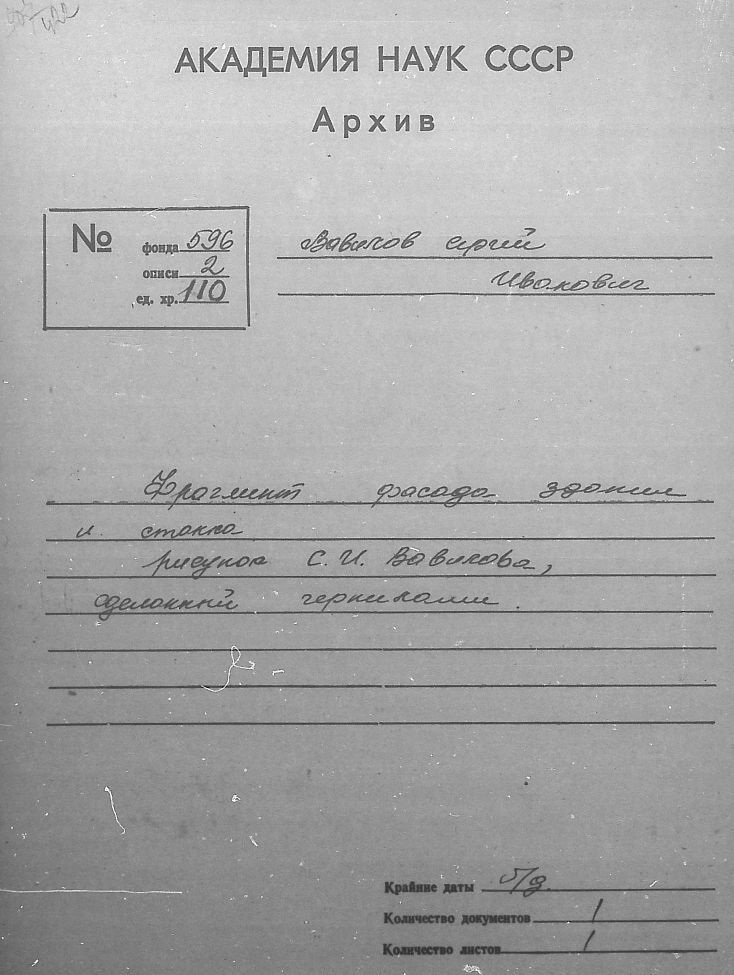 АКАДЕМИЯ НАУК СССР
Архив
№
фонда 596
описи 2
ед. хр. 110
Вавилов Сергей
Иванович
Фрагмент фасада здания
и станка
рисунок С. И. Вавилова,
сделанный чернилами.
Крайние даты б/д.
Количество документов 1
Количество листов 1